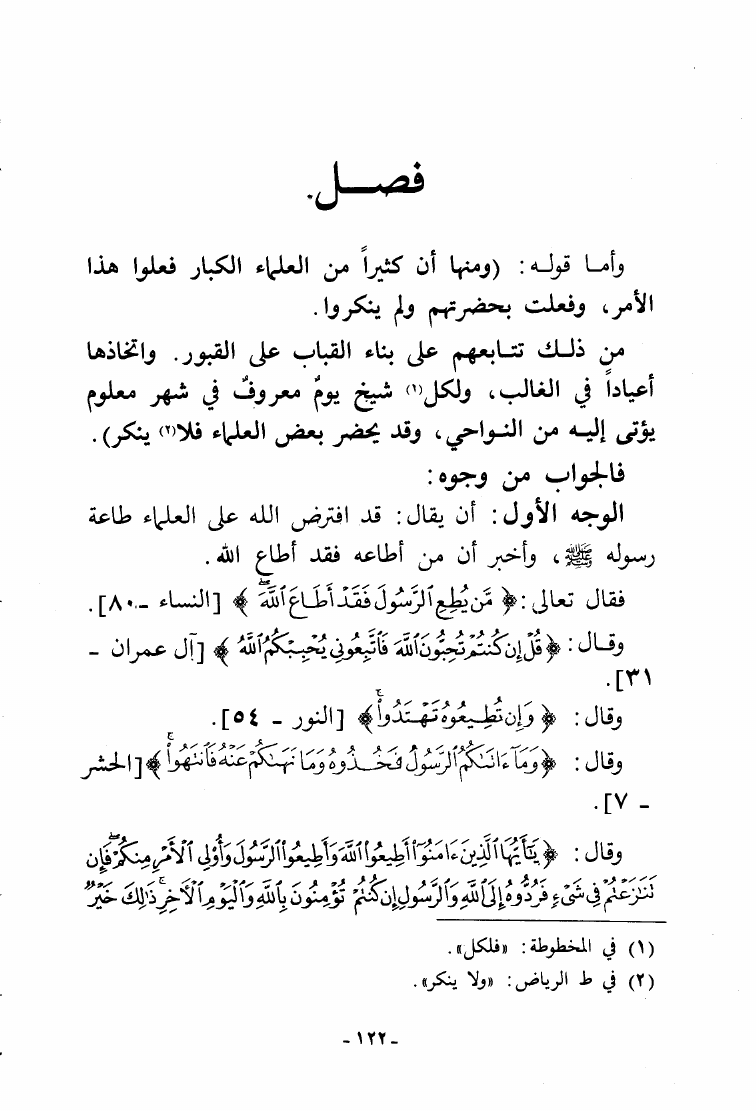 فصـــل.
وأمـا قولـه: (ومنها أن كثيراً من العلماء الكبار فعلوا هذا
الأمر، وفعلت بحضرتهم ولم ينكروا.
من ذلـك تتـابعهم على بناء القباب على القبور. واتخاذها
أعياداً في الغالب، ولكل(١) شيخ يومٌ معروفٌ في شهر معلوم
يؤتى إليـه من النـواحي، وقد يحضر بعض العلماء فلا(٢) ينكر).
فالجواب من وجوه:
الوجه الأول: أن يقال: قد افترض الله على العلماء طاعة
رسوله ﷺ، وأخبر أن من أطاعه فقد أطاع الله.
فقال تعالى: ﴿مَّن يُطِعِ ٱلرَّسُولَ فَقَدْ أَطَاعَ ٱللَّهَ ۖ﴾ [النساء - ٨٠].
وقـال: ﴿قُلْ إِن كُنتُمْ تُحِبُّونَ ٱللَّهَ فَٱتَّبِعُونِى يُحْبِبْكُمُ ٱللَّهُ﴾ [آل عمران -
٣١].
وقال: ﴿وَإِن تُطِيعُوهُ تَهْتَدُوا۟ ۚ﴾ [النور - ٥٤].
وقال: ﴿وَمَآ ءَاتَىٰكُمُ ٱلرَّسُولُ فَخُذُوهُ وَمَا نَهَىٰكُمْ عَنْهُ فَٱنتَهُوا۟ ۚ﴾ [الحشر
- ٧].
وقال: ﴿يَٰٓأَيُّهَا ٱلَّذِينَ ءَامَنُوٓا۟ أَطِيعُوا۟ ٱللَّهَ وَأَطِيعُوا۟ ٱلرَّسُولَ وَأُو۟لِى ٱلْأَمْرِ مِنكُمْ ۖ فَإِن
تَنَٰزَعْتُمْ فِى شَىْءٍ فَرُدُّوهُ إِلَى ٱللَّهِ وَٱلرَّسُولِ إِن كُنتُمْ تُؤْمِنُونَ بِٱللَّهِ وَٱلْيَوْمِ ٱلْءَاخِرِ ۚ ذَٰلِكَ خَيْرٌ
(١) في المخطوطة: «فلكل».
(٢) في ط الرياض: «ولا ينكر».
-١٢٢-